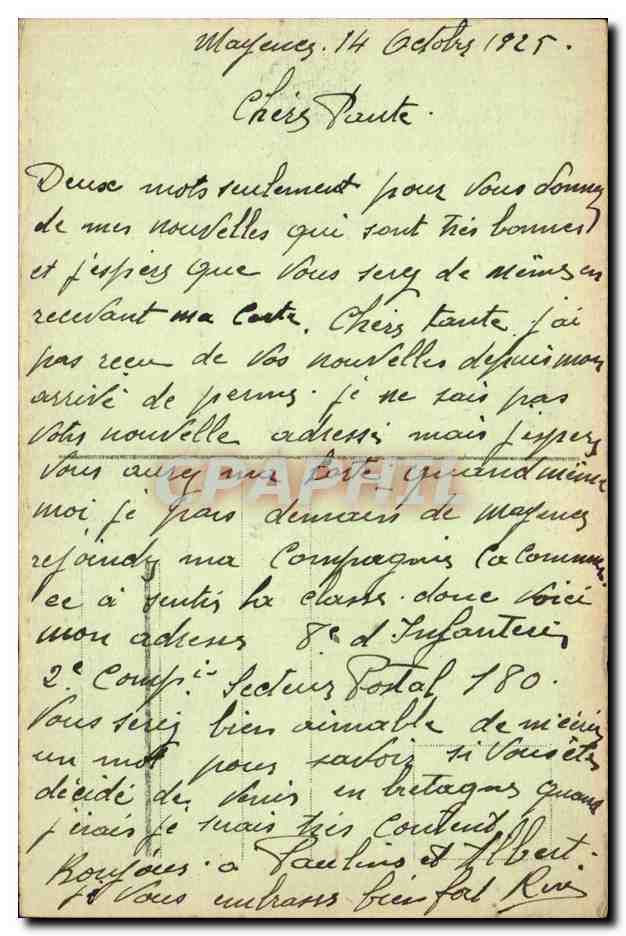 Mayence. 14 Octobre 1925.
Chère Tante.
Deux mots seulement pour vous donner
de mes nouvelles qui sont très bonnes
et j'espère que vous serez de même en
recevant ma carte. Chère tante j'ai
pas recu de vos nouvelles depuis mon
arrivé de perme. je ne sais pas
votre nouvelle adresse mais j'espère
vous aurez ma carte quand même
moi je pars demain de Mayence
rejoindre ma Compagnie Ca Commen
ce à sentir la classe. donc voici
mon adresse 8e d'Infanterie
2e Compie Secteur Postal 180.
Vous serez bien aimable de m'écrire
un mot pour savoir si vous êtes
décidé de venir en bretagne quand
j'irais je serais très content
Bonjour a Pauline et Albert.
Je Vous embrasse bien fort René
CPAPHIL